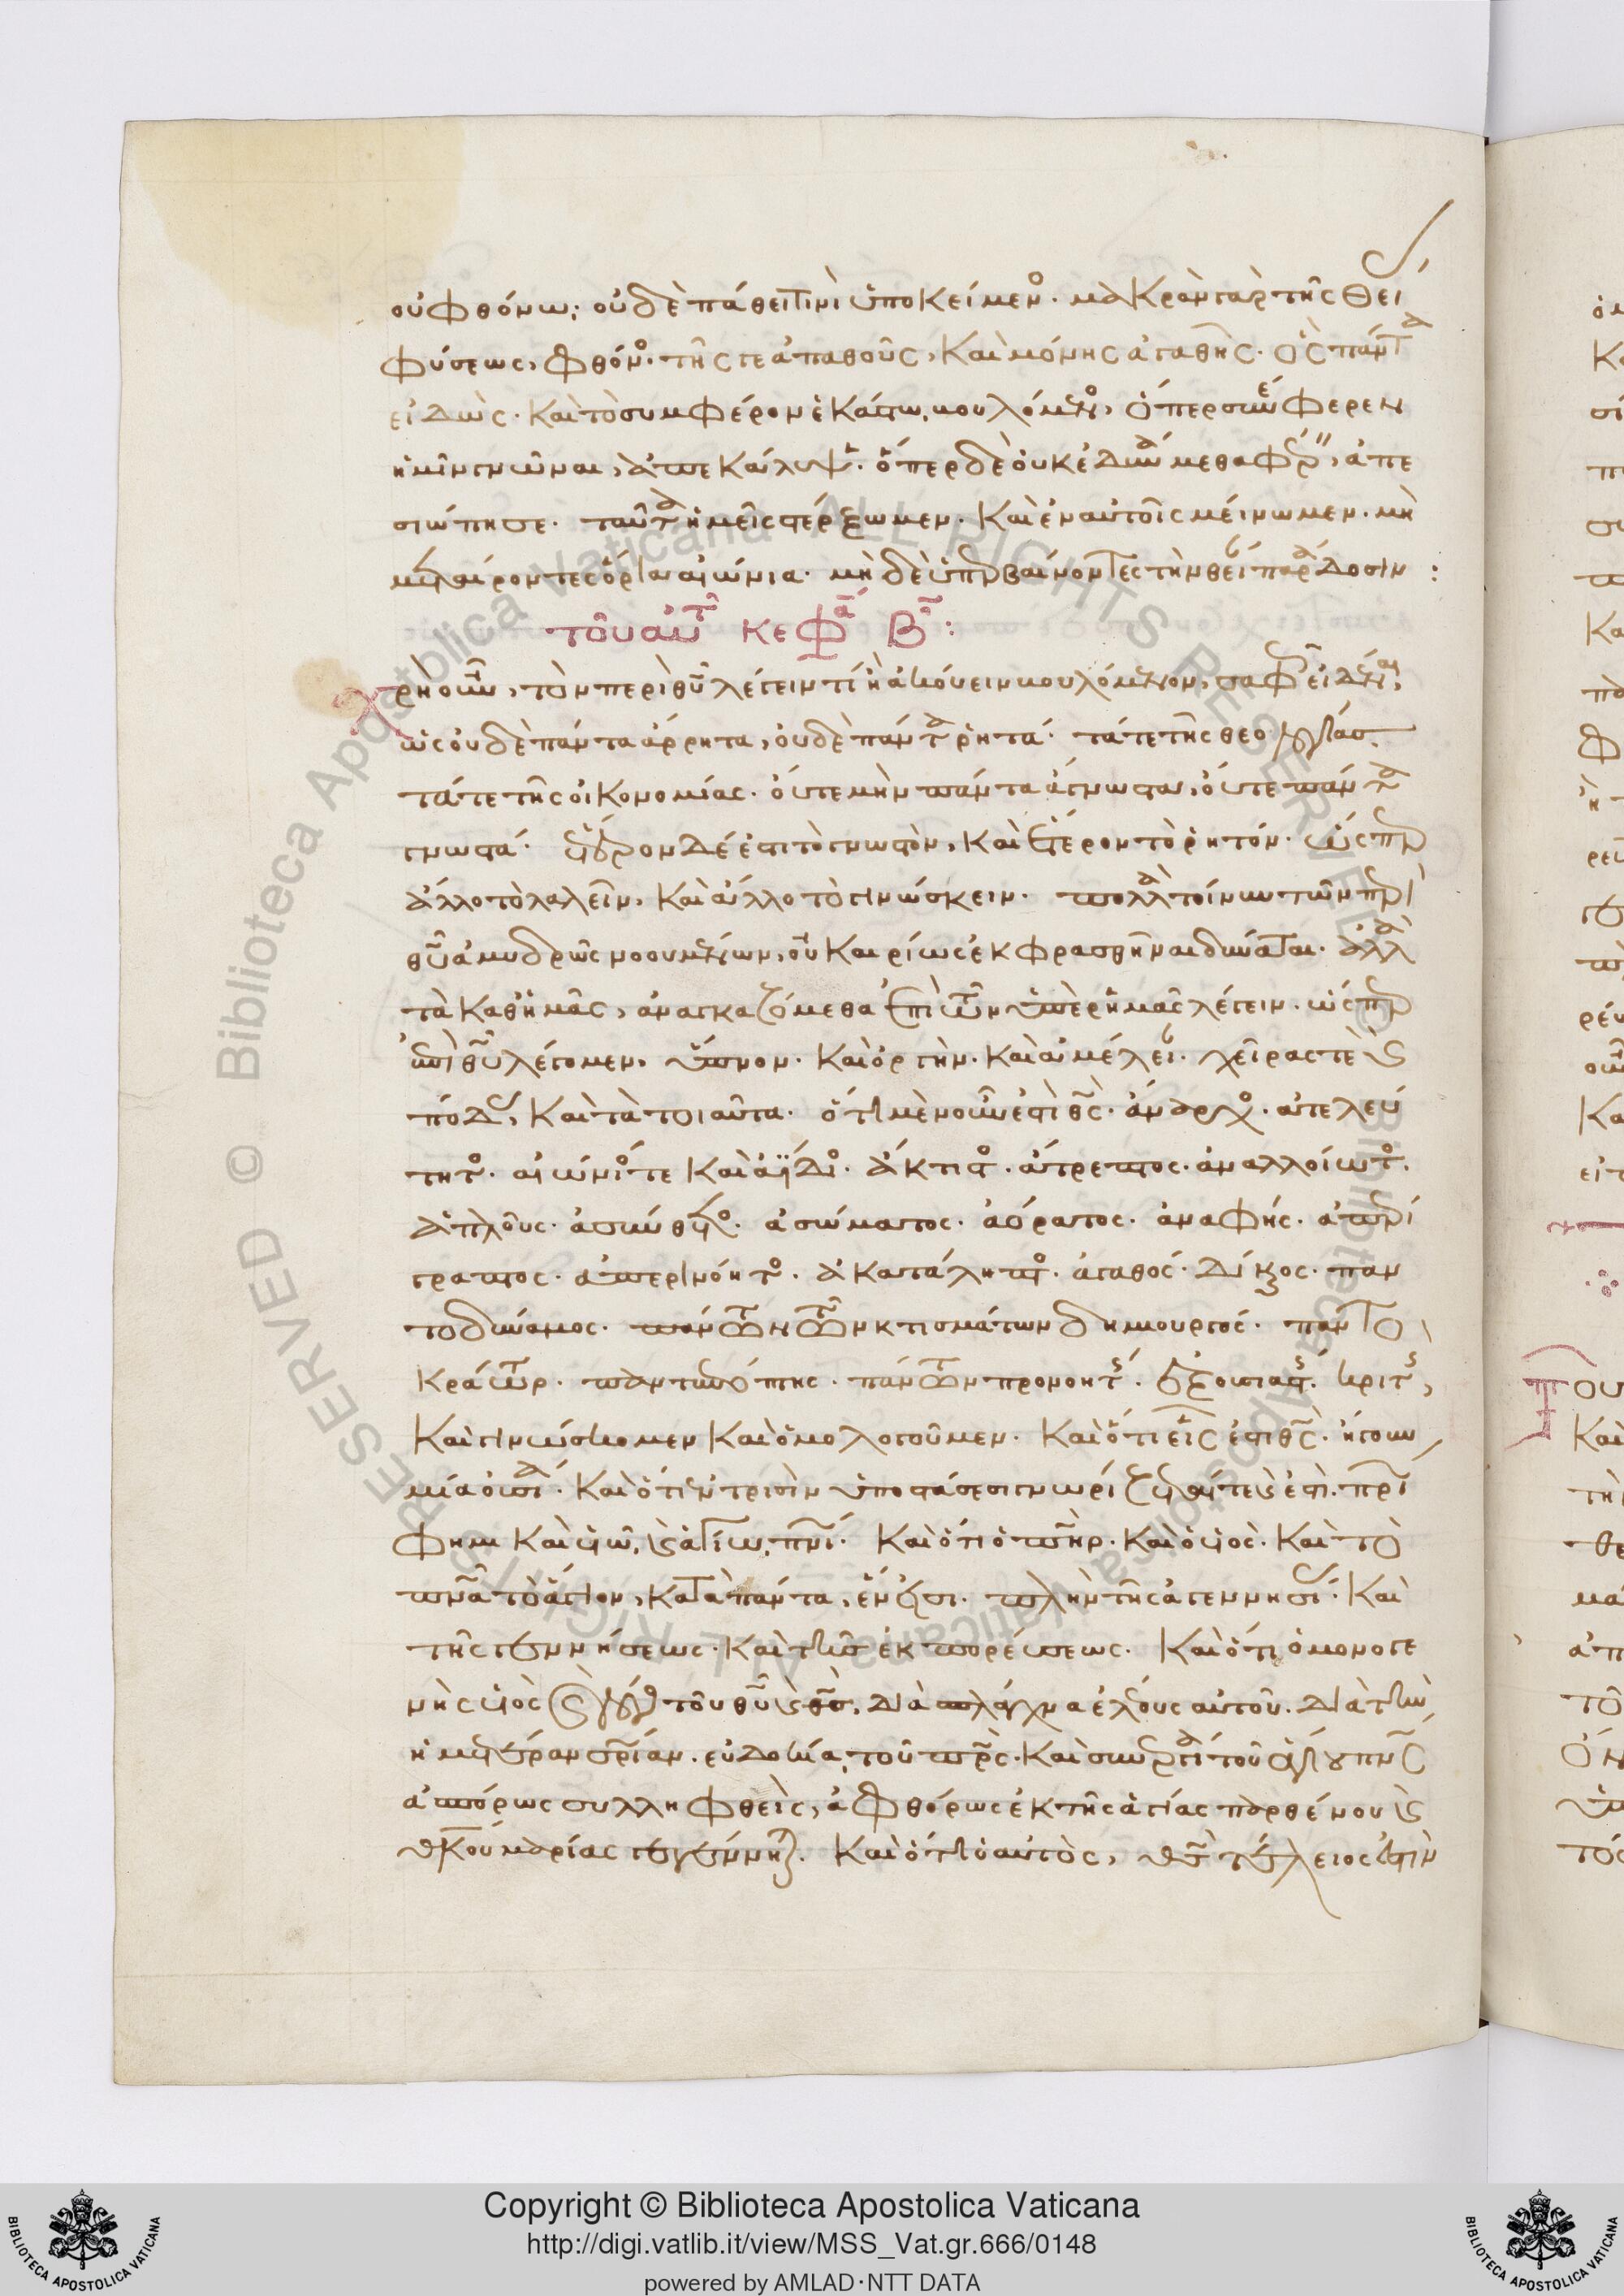 οὐ φθόνω· οὐδὲ πάθει τινὶ ὑποκείμενος. μακρὰν γὰρ τῆς θεί(ας)
φύσεως, φθόνος. τῆς τε ἀπαθοῦς, καὶ μόνης ἀγαθῆς. ὡς πάντα
εἰδὼς. καὶ τὸ συμφέρον ἑκάστω, βουλόμενος, ὅπερ συνέφερεν
ἡμῖν γνῶναι, ἀπεκάλυψεν. ὅπερ δὲ οὐκ ἐδυνάμεθα φέρειν, ἀπε
σιώπησε. ταῦτα ἡμεῖς στέρξωμεν. καὶ ἐν αὐτοῖς μείνωμεν. μὴ
μεταίροντες ὅρια αἰώνια. μὴ δὲ ὑπερβαίνοντες τὴν θείαν παράδοσιν :
τοῦ αὐτοῦ κεφα β :
χρὴ οὖν, τὸν περὶ θεοῦ λέγειν τί ἢ ἀκούειν βουλόμενον, σαφῶς εἰδέναι,
ὡς οὐδὲ πάντα ἄρρητα, οὐδὲ πάντα ῥητά. τά τε τῆς θεολογίας
τά τε τῆς οἰκονομίας. οὔτε μὴν πάντα ἄγνωστα, οὔτε πάντα
γνωστά. ἕτερον δέ ἐστι τὸ γνωστὸν, καὶ ἕτερον τὸ ῥητόν. ὥσπερ
ἄλλο τὸ λαλεῖν, καὶ ἄλλο τὸ γινώσκειν. πολλὰ τοίνυν τῶν περὶ
θεοῦ ἀμυδρῶς νοουμένων, οὐ καιρίως ἐκφρασθῆναι δύναται. ἀλλὰ
τὰ καθ ἡμᾶς, ἀναγκαζόμεθα ἐπὶ τῶν ὑπὲρ ἡμᾶς λέγειν. ὥσπερ
ἐπὶ θεοῦ λέγομεν, ὕπνον. καὶ ὀργὴν. καὶ ἀμέλειαν. χεῖρας τε καὶ
πόδας, καὶ τὰ τοιαῦτα. ὅτι μὲν οὖν ἐστὶ θεὸς. ἄναρχος. ἀτελεύ
τητος. αἰώνιός τε καὶ ἀΐδιος. ἄκτιστος. ἄτρεπτος. ἀναλλοίωτος.
ἁπλοῦς. ἀσύνθετος. ἀσώματος. ἀόρατος. ἀναφής. ἀπερί
γραπτος. ἀπερινόητος. ἀκατάληπτος. ἀγαθός. δίκαιος. παν
τοδύναμος. πάντων τῶν κτισμάτων δημιουργός. παντο
κράτωρ. παντεπόπτης. πάντων προνοητής. ἐξουσιαστής. κριτής,
καὶ γινώσκομεν καὶ ὁμολογοῦμεν. καὶ ὅτι εἷς ἐστι θεὸς. ἤγουν
μία οὐσία. καὶ ὅτι ἐν τρισὶν ὑποστάσεσι γνωρίζεταί τε καὶ ἔστι. πατρί
φημι καὶ υἱῶ, καὶ ἁγίω πνεύματι. καὶ ὅτι ὁ πατὴρ. καὶ ὁ υἱὸς. καὶ τὸ
πνεῦμα τὸ ἅγιον, κατὰ πάντα, ἕν εἰσι. πλὴν τῆς ἀγεννησίας. καὶ
τῆς γεννήσεως. καὶ τῆς ἐκπορεύσεως. καὶ ὅτι ὁ μονογε
νὴς υἱὸς καὶ λόγος τοῦ θεοῦ καὶ θεὸς, διὰ σπλάγχνα ἐλέους αὐτοῦ. διὰ τὴν
ἡμετέραν σωτηρίαν. εὐδοκία τοῦ πατρὸς. καὶ συνεργία τοῦ ἁγίου πνεύματος
ἀσπόρως συλληφθεὶς, ἀφθόρως ἐκ τῆς ἁγίας παρθένου καὶ
θεοτόκου μαρίας γεγέννηται. καὶ ὅτι ὁ αὐτὸς, θεὸς τέλειος ἐστὶν